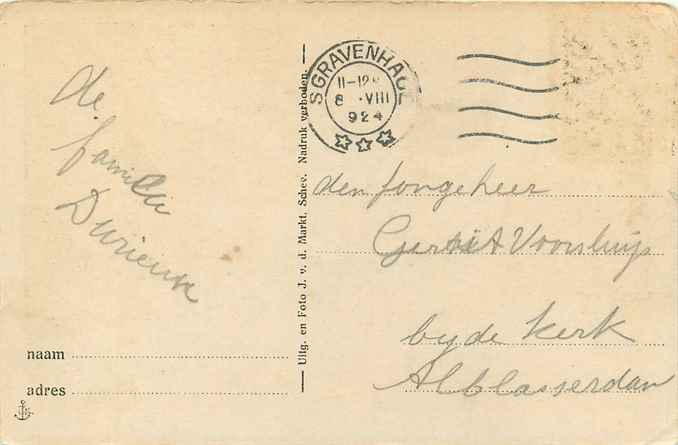 de
familie
Durieux
naam
adres
Uitg. en Foto J. v. d. Markt, Schev. Nadruk verboden.
SGRAVENHAGE
11-12
8 VIII
924
den Jongeheer
Gerrit Voorsluijs
by de Kerk
Alblasserdam